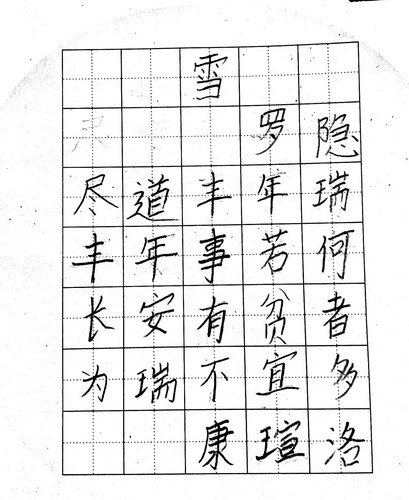 雪
罗隐
尽道丰年瑞
丰年事若何
长安有贫者
为瑞不宜多
康瑄洛